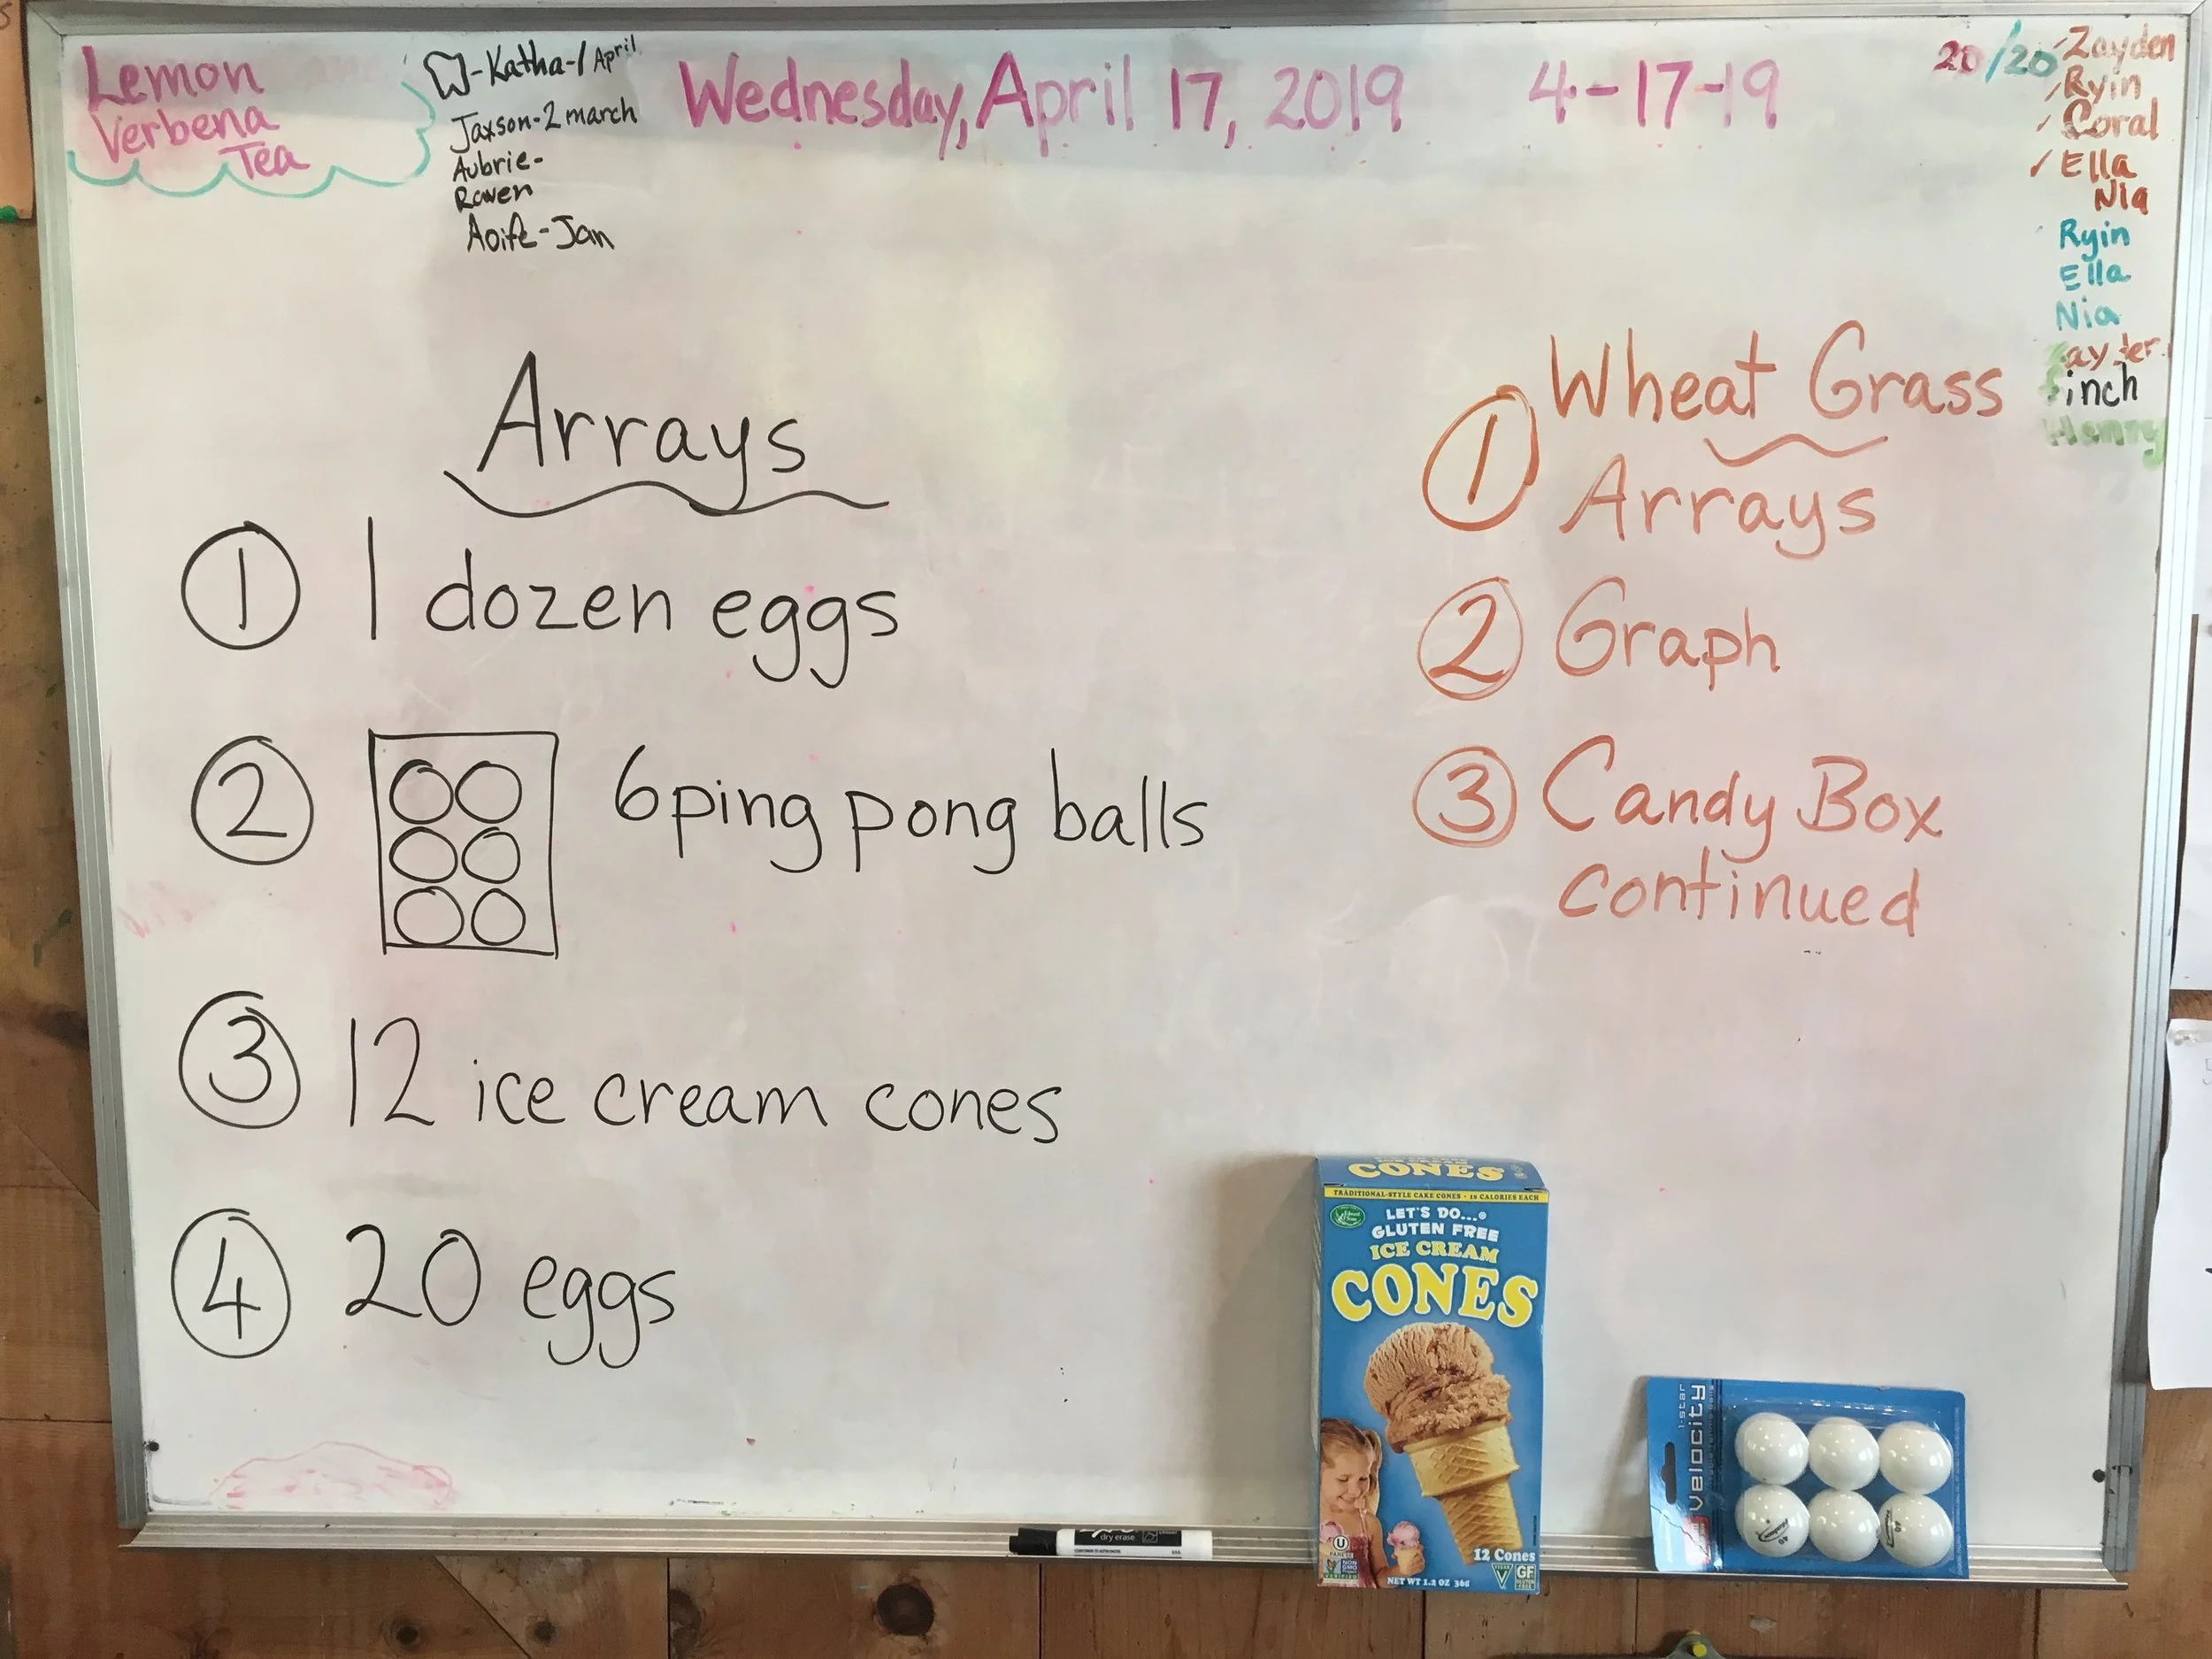 Lemon
Verbena
Tea
-Katha-1 April
Jaxson-2 march
Aubrie-
Rowen
Aoife-Jan
Wednesday, April 17, 2019
4-17-19
20/20
Zayden
Ryin
Coral
Ella
Nia
Ryin
Ella
Nia
finch
Henry
Arrays
1 1 dozen eggs
2 6 ping pong balls
3 12 ice cream cones
4 20 eggs
1 Wheat Grass
Arrays
2 Graph
3 Candy Box
continued
CONES
TRADITIONAL-STYLE CAKE CONES • 18 CALORIES EACH
LET'S DO...®
GLUTEN FREE
ICE CREAM
CONES
12 Cones
NET WT 1.2 OZ 36g
GF
1-star
velocity
dry erase